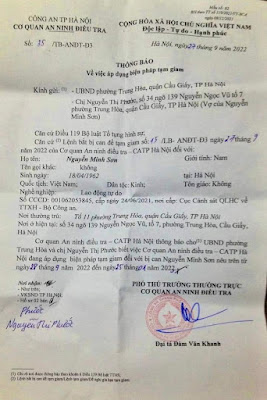 CÔNG AN TP HÀ NỘI
CƠ QUAN AN NINH ĐIỀU TRA
Số: 25 /TB-ANĐT-Đ3
Mẫu số: 82
CỘNG HÒA XÃ HỘI CHỦ NGHĨA VIỆT NAM
Độc lập - Tự do - Hạnh phúc
Hà Nội, ngày 9 năm 2022
THÔNG BÁO
Về việc áp dụng biện pháp tạm giam
Kính gửi: (1) - UBND phường Trung Hòa, quận Cầu Giấy, TP Hà Nội
- Chị Nguyễn Thị Phước, số 34 ngõ 139 Nguyễn Ngọc Vũ tổ 7
phường Trung Hòa, quận Cầu Giấy, TP Hà Nội (Vợ của Nguyễn
Minh Sơn)
Căn cứ Điều 119 Bộ luật Tố tụng hình sự;
Căn cứ (2) Lệnh bắt bị can để tạm giam số /LB- ANĐT-Đ3 ngày
năm 2022 của Cơ quan An ninh điều tra – CATP Hà Nội đối với:
Họ tên: Nguyễn Minh Sơn Giới tính: Nam
Tên gọi khác: Không
Ngày sinh: 18/04/1962 Tại:
Quốc tịch: Việt Nam; Dân tộc: Kinh; Tôn giáo: Không
Nghề nghiệp: Lao động tự do
Số CCCD: 001062053845, cấp ngày 24/06/2021, nơi cấp: Cục Cảnh sát QLHC về
TTXH - Bộ Công an.
Nơi thường trú: Tổ 11 phường Trung Hòa, quận Cầu Giấy, TP Hà Nội
Nơi ở hiện tại: số 34 ngõ 139 Nguyễn Ngọc Vũ, tổ 7, phường Trung Hòa, Cầu Giấy,
Hà Nội.
Cơ quan An ninh điều tra – CATP Hà Nội thông báo cho UBND phường
Trung Hòa và chị Nguyễn Thị Phước biết Cơ quan An ninh điều tra – CATP Hà Nội
đang áp dụng biện pháp tạm giam đối với bị can Nguyễn Minh Sơn nêu trên từ
ngày 9 năm 2022 đến ngày năm 2022.
Nơi nhận:
- Như trên;
- VKSND TP Hà Nội;
Phước
Nguyễn Thị Phước
PHÓ THỦ TRƯỞNG THƯỜNG TRỰC
CƠ QUAN AN NINH ĐIỀU TRA
Đại tá Đàm Văn Khanh